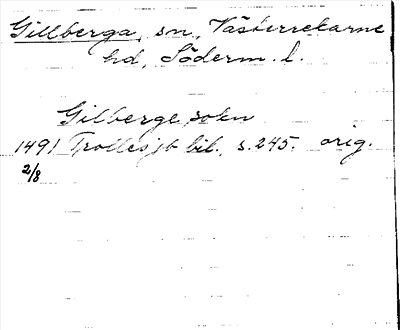 Gillberga, sn., Västerrekarne
hd, Söderm. l.
Gilberge sokn
1491 Trolles jb bil., s. 245. orig.
2/8